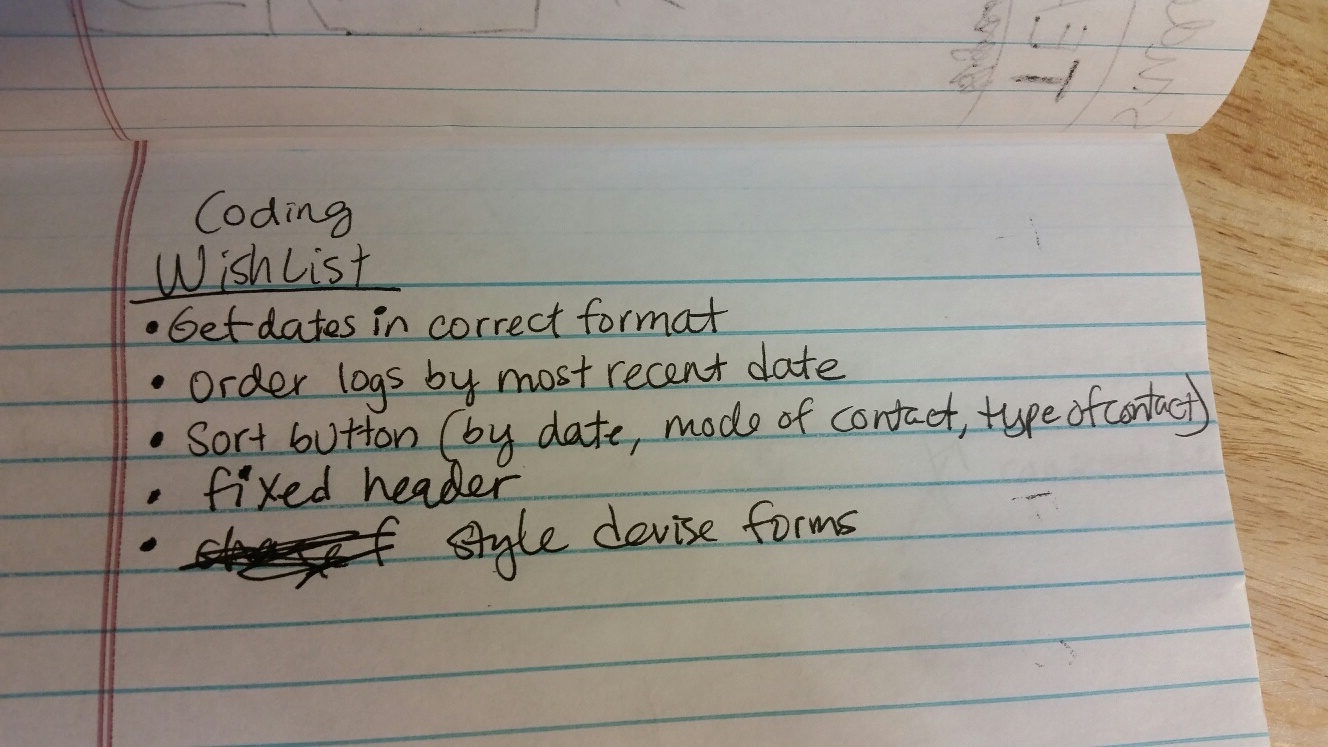 Coding
Wish List
• Get dates in correct format
• Order logs by most recent date
• Sort button (by date, mode of contact, type of contact)
• fixed header
• style devise forms